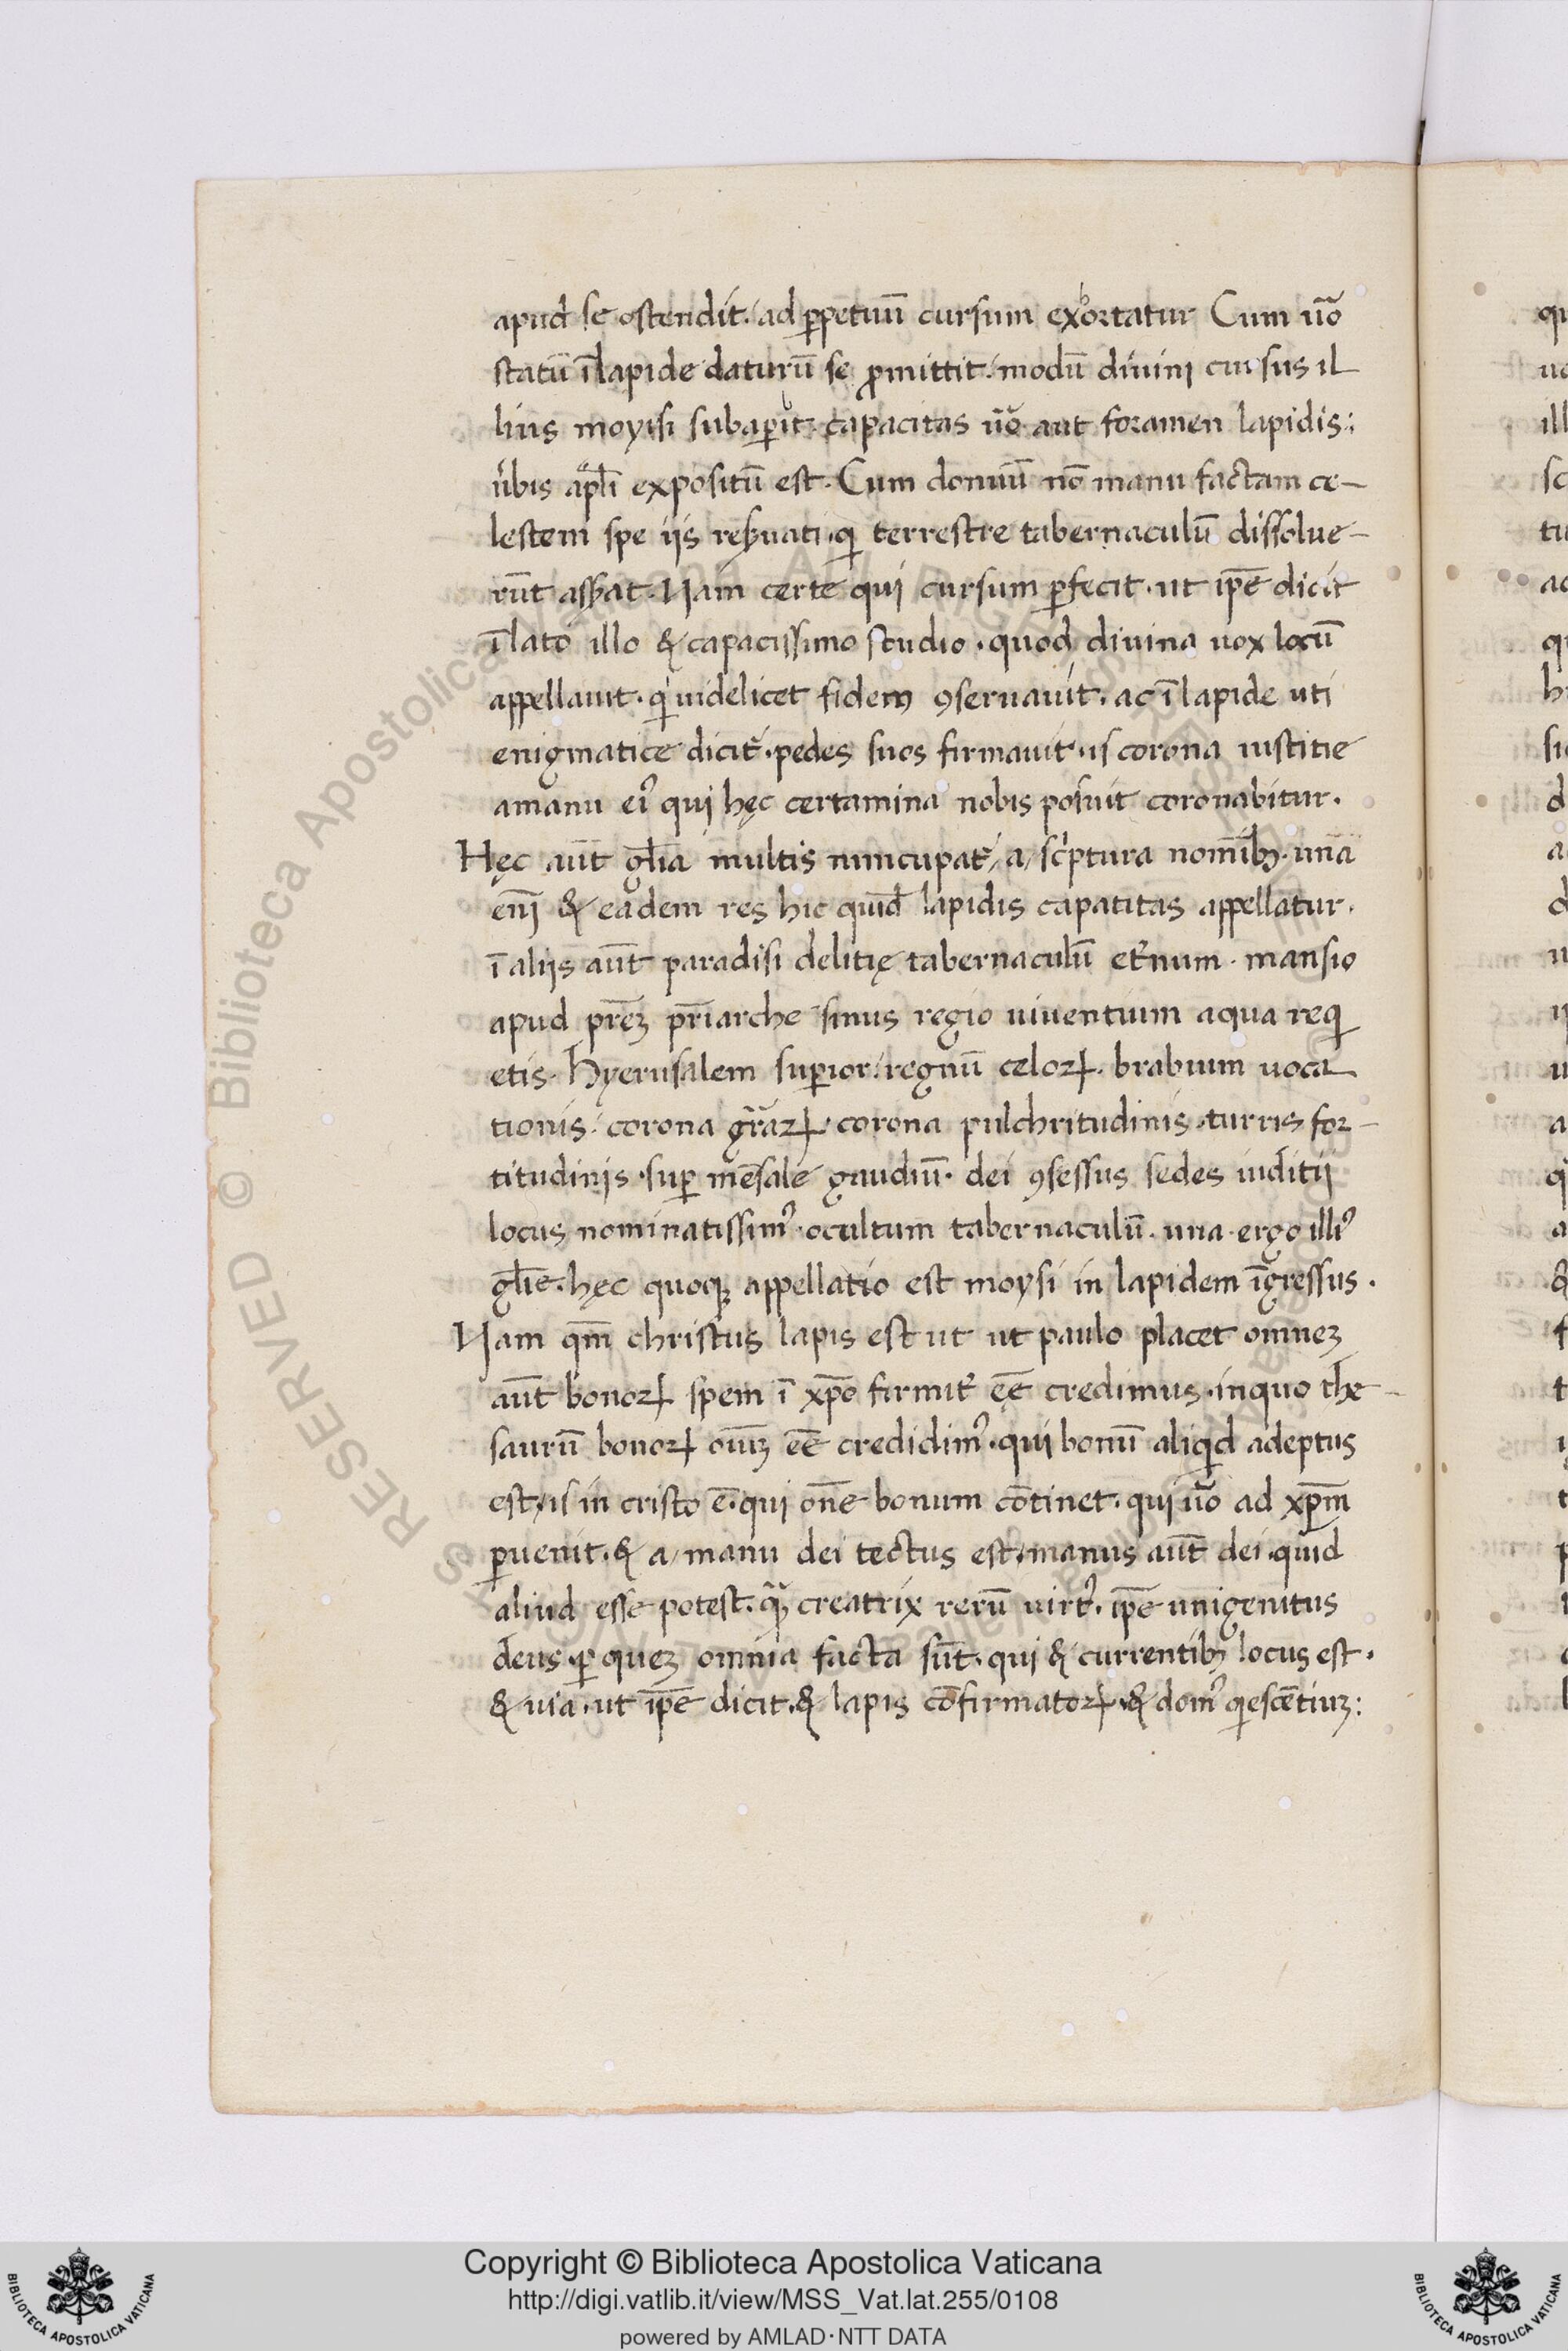 apud se ostendit. ad ꝑpetuū cursum exhortatur Cum ũo
statū ĩ lapide daturū se ꝓmittit. modū divini cursus il
lius moyisi subaꝑit capacitas ũo aut foramen lapidis:
ủbis apl̄i expositū est. Cum domū nō manu factam ce-
lestem spe ijs resꝑuati qi terrestre tabernaculū dissolue-
rūt asserat. Nam certe qui cursum ꝑfecit. ut ip̄e dicit
ĩ lato illo & capacissimo studio. quod divina vox locū
appellavit. qi videlicet fidem ꝯservavit. ac ĩ lapide uti
enigmatice dicit̃. pedes suos firmavit. is corona iustitie
amanu eiꝰ qui hęc certamina nobis posuit coronabitur.
Hęc aūt gl̄ia multis nuncupat̃ / a / scͥptura nomĩbꝫ. una
enĩ & eadem res hic quid̄ lapidis capatitas appellatur.
ĩ aliis aūt paradisi delitię tabernaculū et̃num. mansio
apud pr̄eꝫ pr̄iarche sinus regio viventium aqua reqi
etis. Hyerusalem suꝑior. regnū celoꝝ. brabium voca
tionis. corona gr̃aꝝ corona pulchritudinis. turris for-
titudinis. suꝑ mēsale gaudiū. dei ꝯsessus sedes iuditii
locus nominatissimꝰ. ocultum tabernaculū. una ergo illiꝰ
gl̄ie. hęc quoqꝫ appellatio est moysi in lapidem ĩgressus.
Nam qm̄ christus lapis est ut ut paulo placet omneꝫ
aūt bonoꝝ spem ĩ xp̄o firmit̃ eē̄ credimus. inquo the-
saurū bonoꝝ oīuꝫ eē̄ credidimꝰ. qui bonū aliqid adeptus
est / is in cristo ē. qui on̄e bonum cōtinet. qui ũo ad xp̄m
ꝑuenit. & a / manu dei tectus est / manus aūt dei quid
aliud esse potest. qꝫ̃ creatrix rerū virtꝰ. ip̄e unigenitus
deus. ꝑ queꝫ omnia facta sūt. qui & currentibꝫ locus est.
& via. ut ip̄e dicit. & lapis cōfirmatoꝝ. & domꝰ qiescētiuꝫ:
Copyright © Biblioteca Apostolica Vaticana
http://digi.vatlib.it/view/MSS_Vat.lat.255/0108
powered by AMLAD·NTT DATA